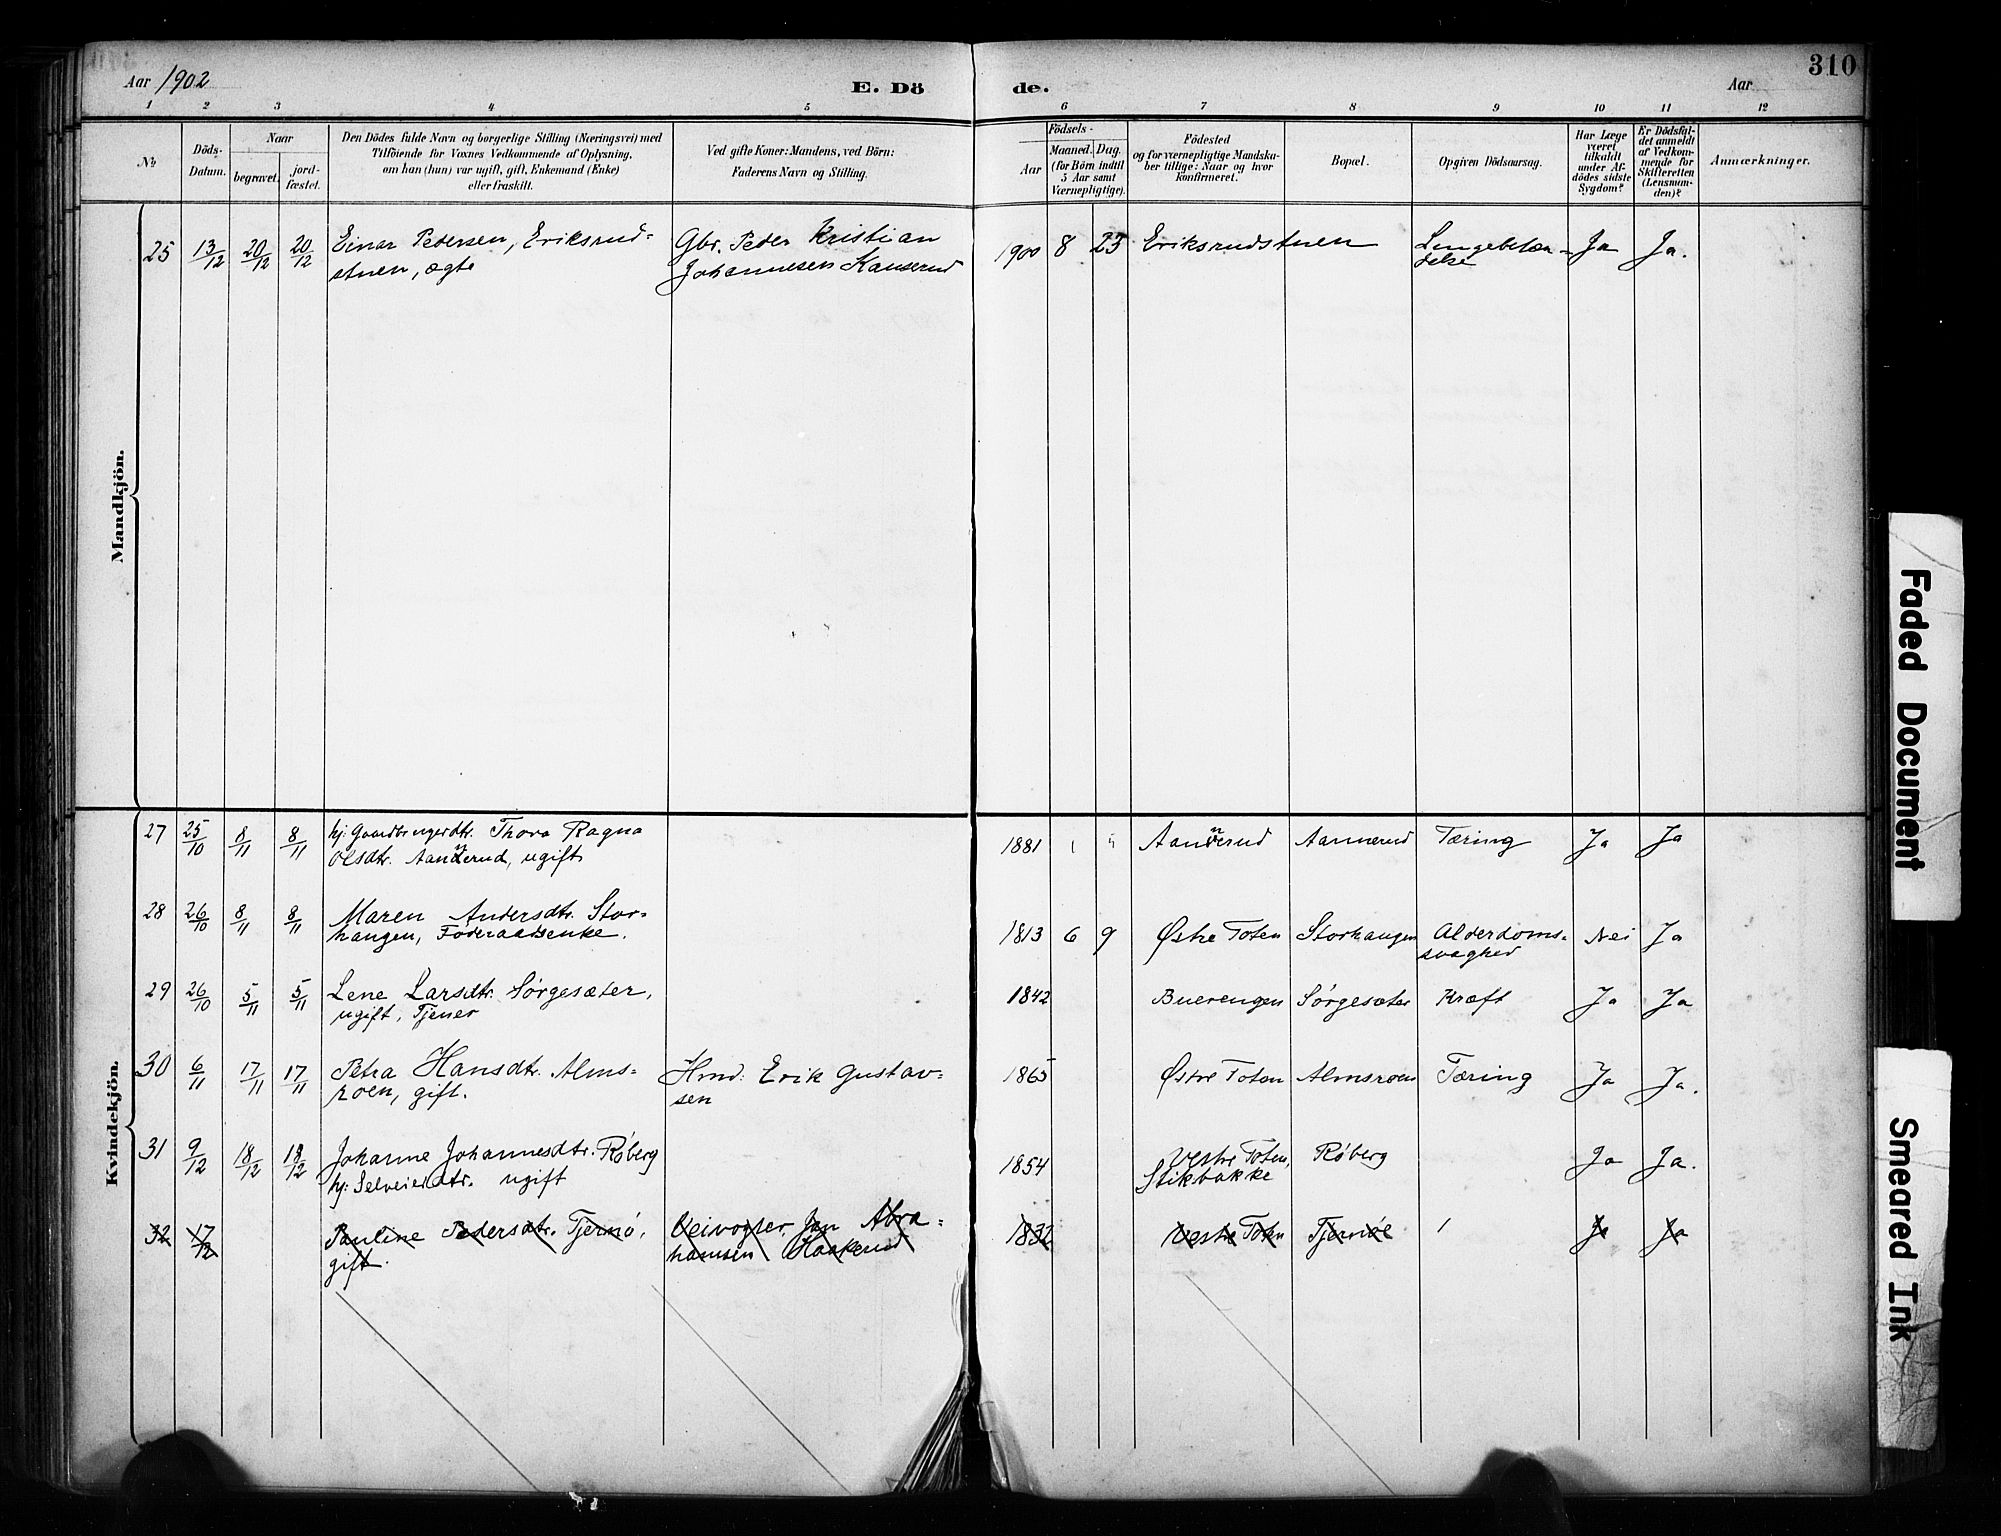 310
Aar 1902
E. Dö de.
Aar
1 2 3 4 5 6 7 8 9 10 11 12
No
Döds-
Datum.
Naar
begravet.
jord-
fæstet.
Den Dödes fulde Navn og borgerlige Stilling (Næringsvei) med
Tilföiende for Voxnes Vedkommende af Oplysning,
om han (hun) var ugift, gift, Enkemand (Enke)
eller fraskilt.
Ved gifte Koner: Mandens, ved Börn:
Faderens Navn og Stilling.
Födsels-
Aar
Maaned. Dag.
(for Börn indtil
5 Aar samt
Værnepligtige).
Födested
og for værnepligtige Mandska-
ber tillige: Naar og hvor
konfirmeret.
Bopæl.
Opgiven Dödsaarsag.
Har Læge
været
tilkaldt
under Af-
dödes sidste
Sygdom?
Er Dödsfal-
det anmeldt
af Vedkom-
mende for
Skifteretten
(Lensman-
den)?
Anmærkninger.
Mandkjön.
25 13/12 20/12 20/12 Einar Pedersen, Eriksrud- Gbr. Peder Kristian 1900 8 23 Eriksrudstuen Lungebetæn- Ja Ja.
stuen, ægte Johannesen Kauserud delse
Kvindekjön.
27 25/10 8/11 8/11 hj: Gaardbrugerdtr. Thora Ragna 1881 Aannerud Aannerud Tæring Ja Ja
Olsdtr. Aannerud, ugift
28 26/10 8/11 8/11 Maren Andersdtr. Stor- 1813 6 9 Østre Toten Storhaugen Alderdoms- Nei Ja
haugen, Føderaadsenke. svaghed
29 26/10 5/11 5/11 Lene Larsdtr. Sørgesæter, 1842 Buerengen Sørgesæter Kræft Ja Ja
ugift, Tjener
30 6/11 17/11 17/11 Petra Hansdtr. Alms- Hmd. Erik Gustav- 1865 Østre Toten Almsroen Tæring Ja Ja.
roen, gift. sen
31 9/12 18/12 18/12 Johanne Johannesdtr. Røberg 1854 Vestre Toten, Røberg Ja Ja.
hj: Selveierdtr. ugift Stikbakke
32 17/12 Pauline Pedersdtr. Tjernø, Veivogter Jan Abra- 1832 Vestre Toten Tjernøe Ja Ja
gift. hamsen Haakerud
Faded Document
Smeared Ink